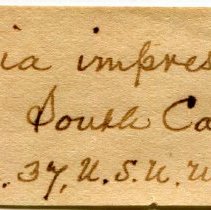 ia impres
South Ca
. 37, U.S.U.